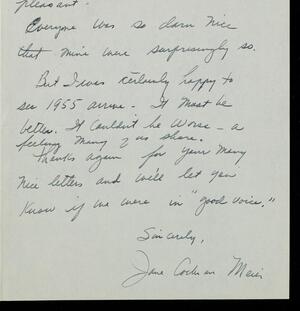 pleasant.
Everyone was so darn nice
that mine were surprisingly so.
But I was certainly happy to
see 1955 arrive - it must be
better. It couldn't be worse - a
feeling many of us share.
Thanks again for your many
nice letters and we'll let you
know if we were in "good voice."
Sincerely,
Jane Cochran Meier